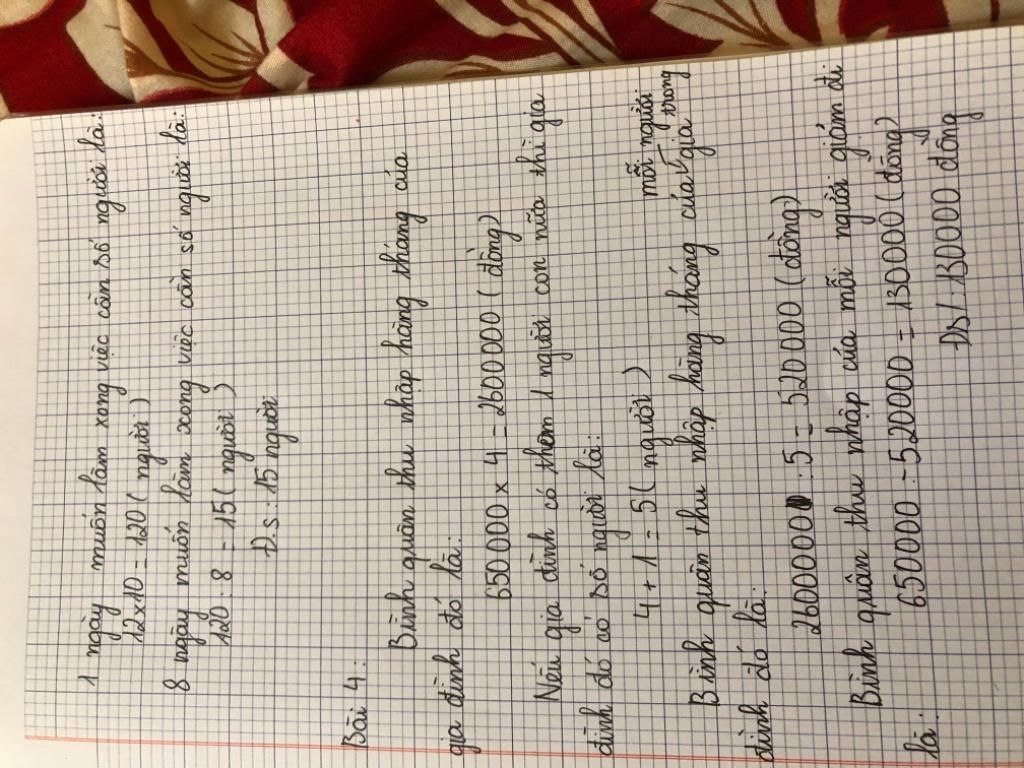 1 ngày muốn làm xong việc cần số người là:
12x10 = 120 ( người )
8 ngày muốn làm xong việc cần số người là:
120 : 8 = 15 ( người )
Đ.s : 15 người
Bài 4 :
Bình quân thu nhập hàng tháng của
gia đình đó là:
650 000 x 4 = 2600 000 ( đồng)
Nếu gia đình có thêm 1 người con nữa thì gia
đình đó có số người là:
4 + 1 = 5 ( người )
mỗi người
trong
Bình quân thu nhập hàng tháng của gia
đình đó là:
2600000 : 5 = 520 000 ( đồng)
Bình quân thu nhập của mỗi người giảm đi
là:
650000 - 520000 = 130000 ( đồng)
Đs : 130000 đồng